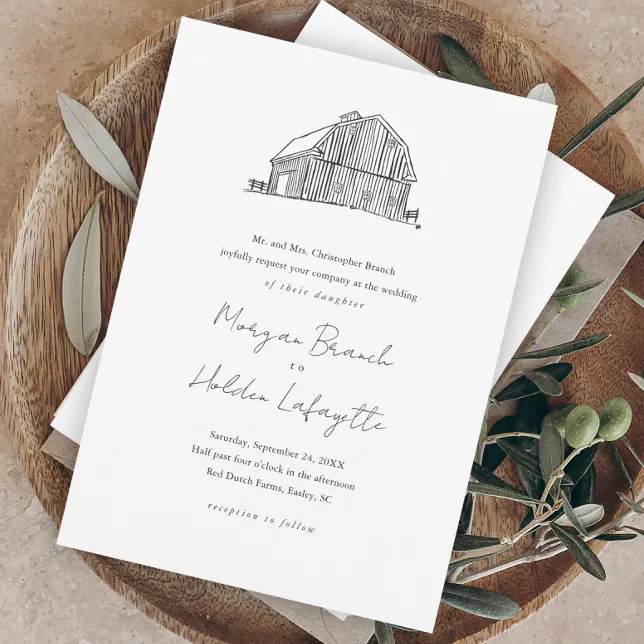 Mr. and Mrs. Christopher Branch
joyfully request your company at the wedding
of their daughter
Morgan Branch
to
Holden Lafayette
Saturday, September 24, 20XX
Half past four o'clock in the afternoon
Red Dutch Farms, Easley, SC
reception to follow